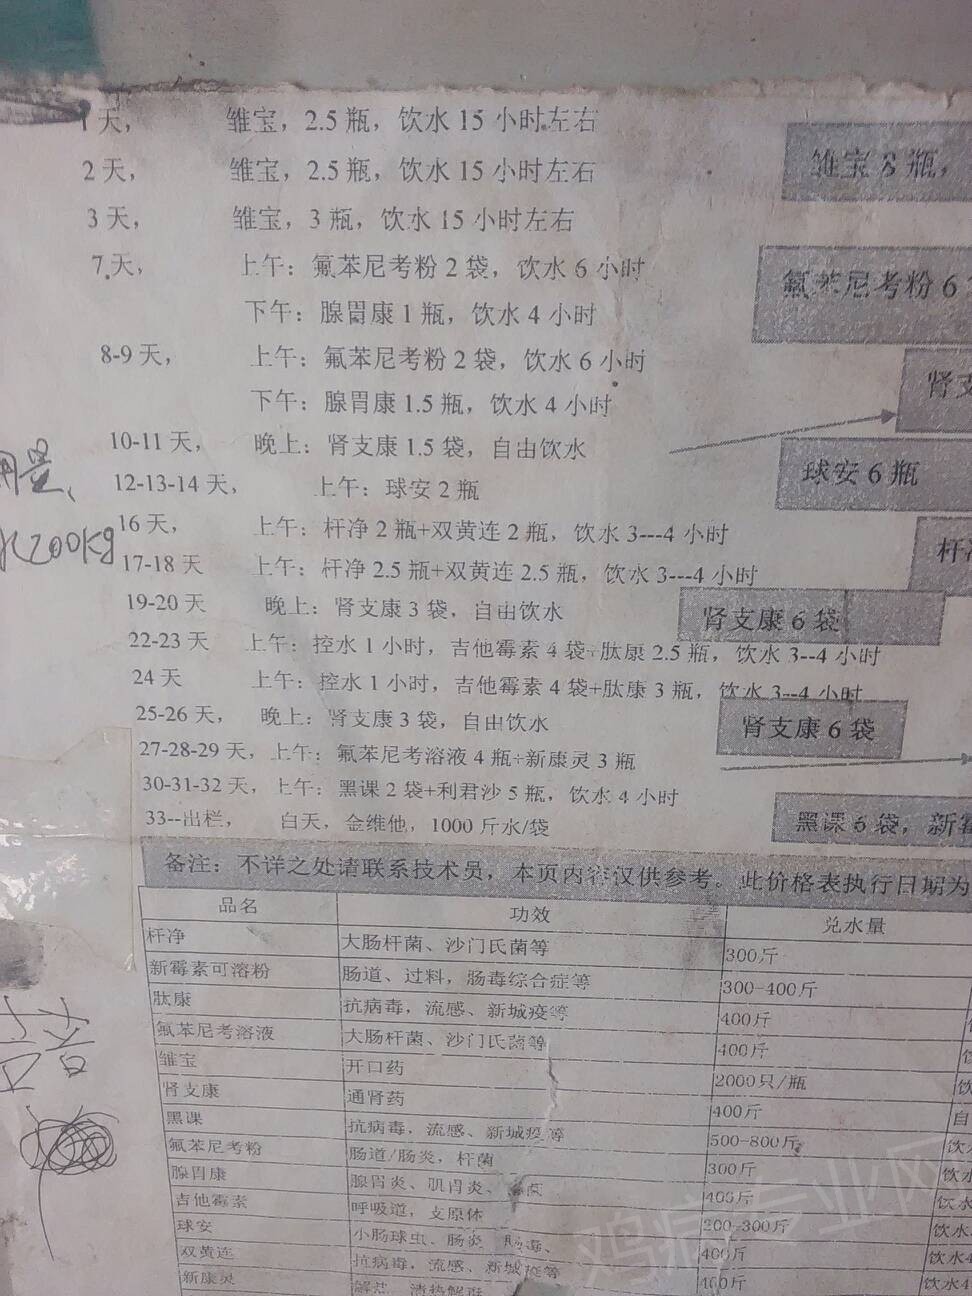 1天， 雏宝，2.5瓶，饮水15小时左右
2天， 雏宝，2.5瓶，饮水15小时左右
雏宝8瓶，
3天， 雏宝，3瓶，饮水15小时左右
7天， 上午：氟苯尼考粉2袋，饮水6小时
氟苯尼考粉6
下午：腺胃康1瓶，饮水4小时
8-9天， 上午：氟苯尼考粉2袋，饮水6小时
肾支
下午：腺胃康1.5瓶，饮水4小时
10-11天， 晚上：肾支康1.5袋，自由饮水
球安6瓶
用量、
12-13-14天， 上午：球安2瓶
16天， 上午：杆净2瓶+双黄连2瓶，饮水3---4小时
水200kg
杆净
17-18天 上午：杆净2.5瓶+双黄连2.5瓶，饮水3---4小时
19-20天 晚上：肾支康3袋，自由饮水
肾支康6袋
22-23天 上午：控水1小时，吉他霉素4袋+肽康2.5瓶，饮水3--4小时
24天 上午：控水1小时，吉他霉素4袋+肽康3瓶，饮水3--4小时
25-26天， 晚上：肾支康3袋，自由饮水
肾支康6袋
27-28-29天，上午：氟苯尼考溶液4瓶+新康灵3瓶
30-31-32天，上午：黑课2袋+利君沙5瓶，饮水4小时
黑课6袋，新霉
33--出栏， 白天，金维他，1000斤水/袋
备注：不详之处请联系技术员，本页内容仅供参考。此价格表执行日期为
品名 功效 兑水量
杆净 大肠杆菌、沙门氏菌等 300斤
新霉素可溶粉 肠道、过料，肠毒综合症等 300-400斤
肽康 抗病毒，流感、新城疫等 400斤
氟苯尼考溶液 大肠杆菌、沙门氏菌等 400斤
雏宝 开口药 2000只/瓶 饮
肾支康 通肾药 400斤 自
黑课 抗病毒，流感、新城疫等 500-800斤 饮水
氟苯尼考粉 肠道/肠炎，杆菌 300斤 饮水
腺胃康 腺胃炎、肌胃炎、 400斤 饮水
吉他霉素 呼吸道，支原体 200-300斤 饮水
球安 小肠球虫、肠炎、肠毒、 400斤 饮水4
双黄连 抗病毒，流感、新城疫等 400斤 饮水4
新康灵 解热，清热解毒
鸡病专业网